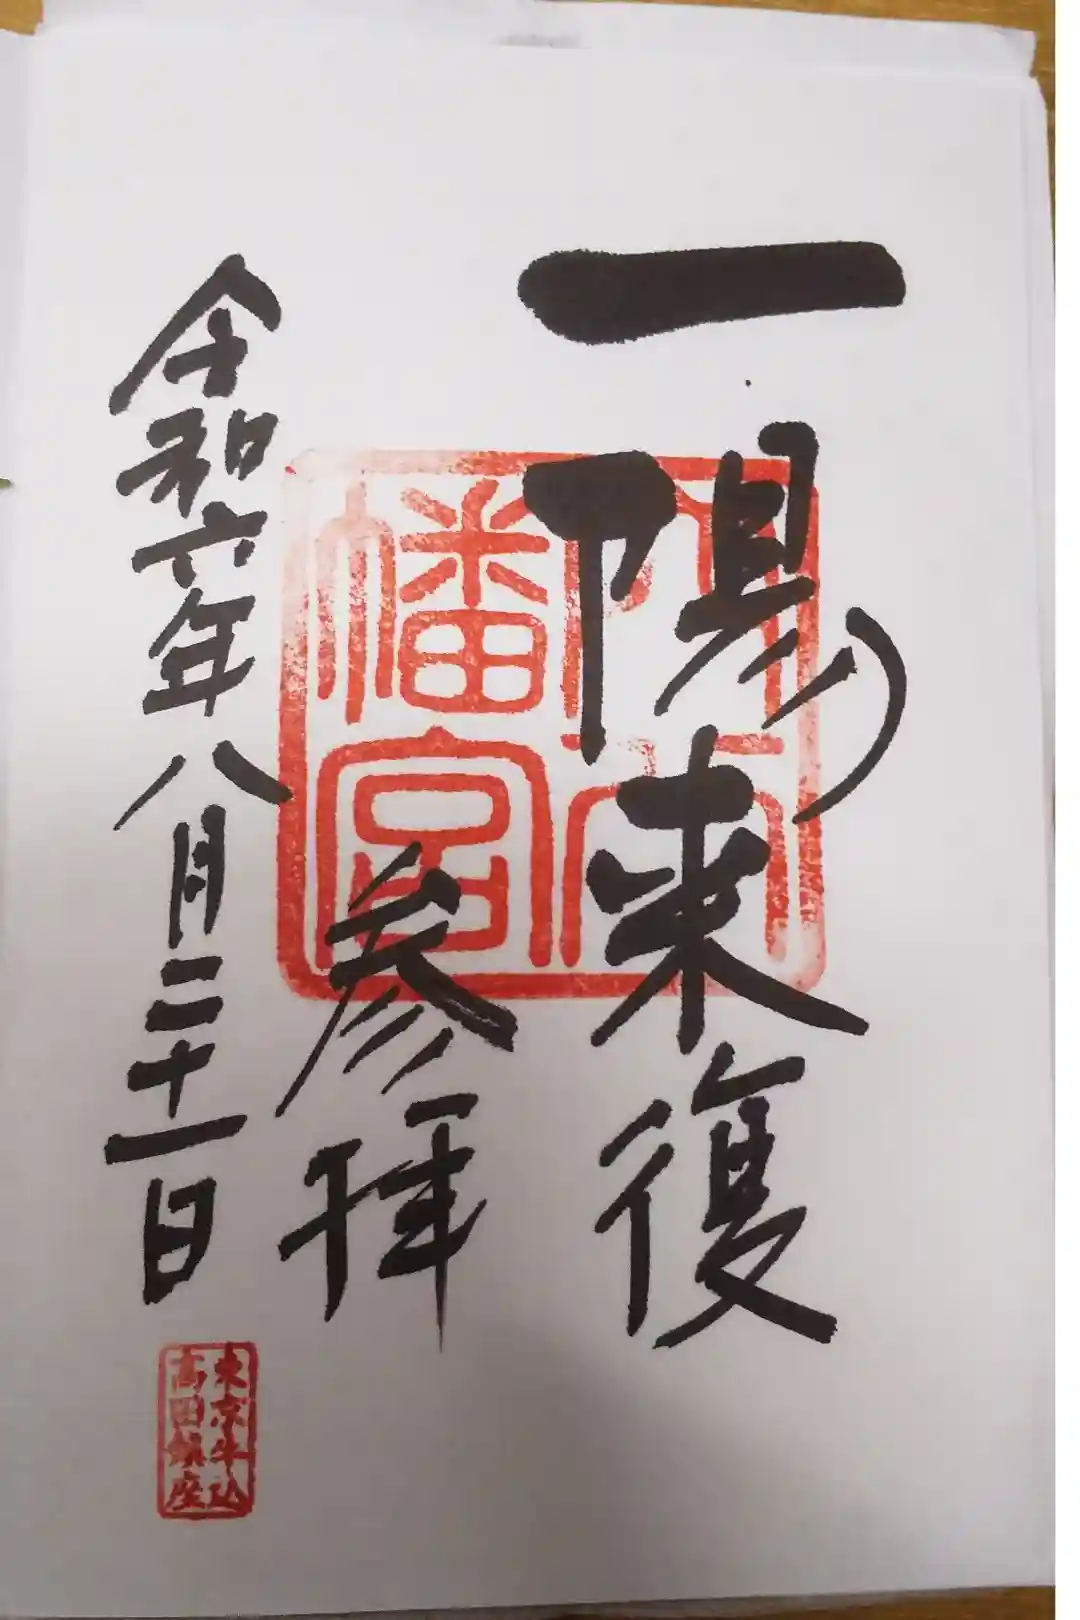 一陽来復
参拝
令和六年八月二十一日
穴八幡宮
東京牛込
高田鎮座